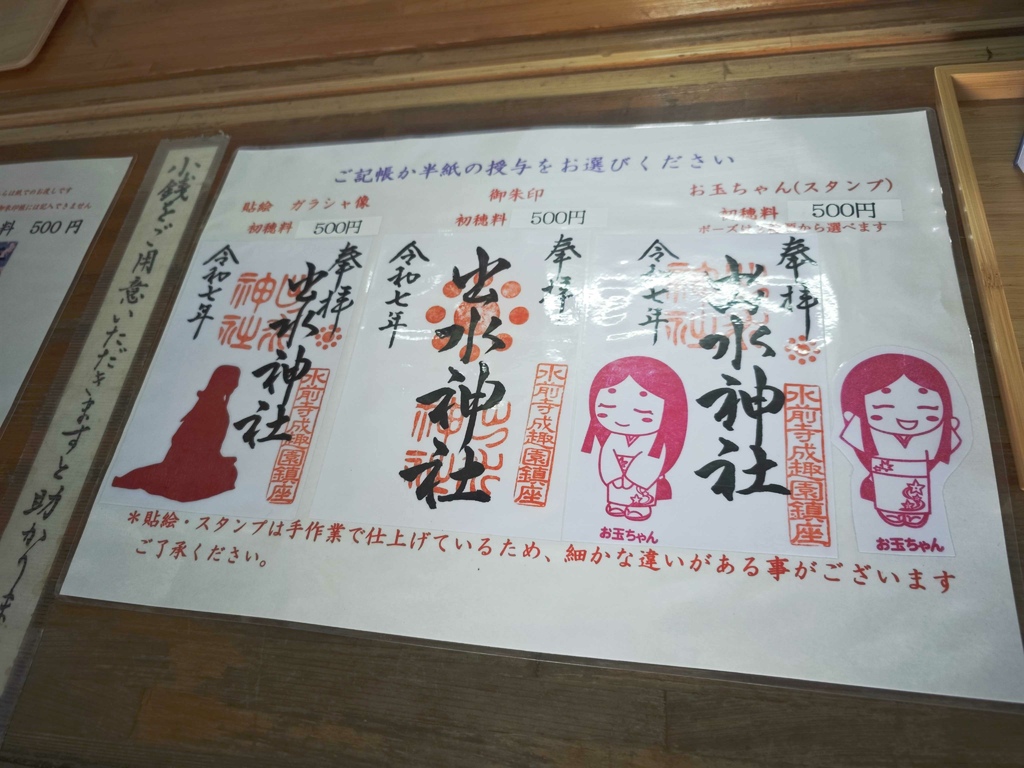 は紙でのお渡しです
料 500円
小銭をご用意いただきますと助かりま
ご記帳か半紙の授与をお選びください
貼絵 ガラシャ像
初穂料 500円
御朱印
初穂料 500円
お玉ちゃん(スタンプ)
初穂料 500円
から選べます
奉拝
出水神社
令和七年
神社
水前寺成趣園鎮座
奉拝
出水神社
令和七年
出水神社
水前寺成趣園鎮座
奉拝
出水神社
令和七年
神社
水前寺成趣園鎮座
お玉ちゃん
お玉ちゃん
*貼絵・スタンプは手作業で仕上げているため、細かな違いがある事がございます
ご了承ください。